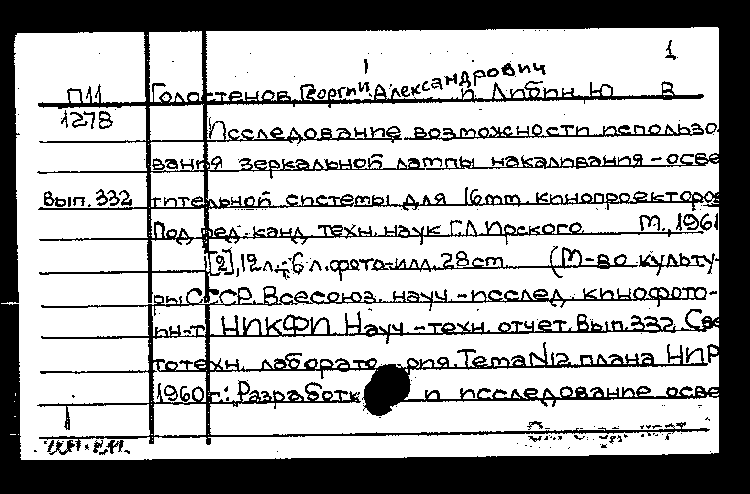 1
П11 Голостенов, Георгий Александрович и Липин, Ю В
1278 Исследование возможности использо
вания зеркальной лампы накаливания - осве
Вып. 332 тительной системы для 16mm. кинопроекторов
Под ред. канд. техн. наук Г.Л Ирского М., 1961
[2], 12 л., 6 л. фото-илл. 28cm (М-во культу-
ры СССР. Всесоюз. науч.-исслед. кинофото-
ин-т НИКФИ. Науч-техн. отчет. Вып. 332. Све
тотехн. лаборатория. Тема N12 плана НИР
1960 г.: Разработк и исследование осве